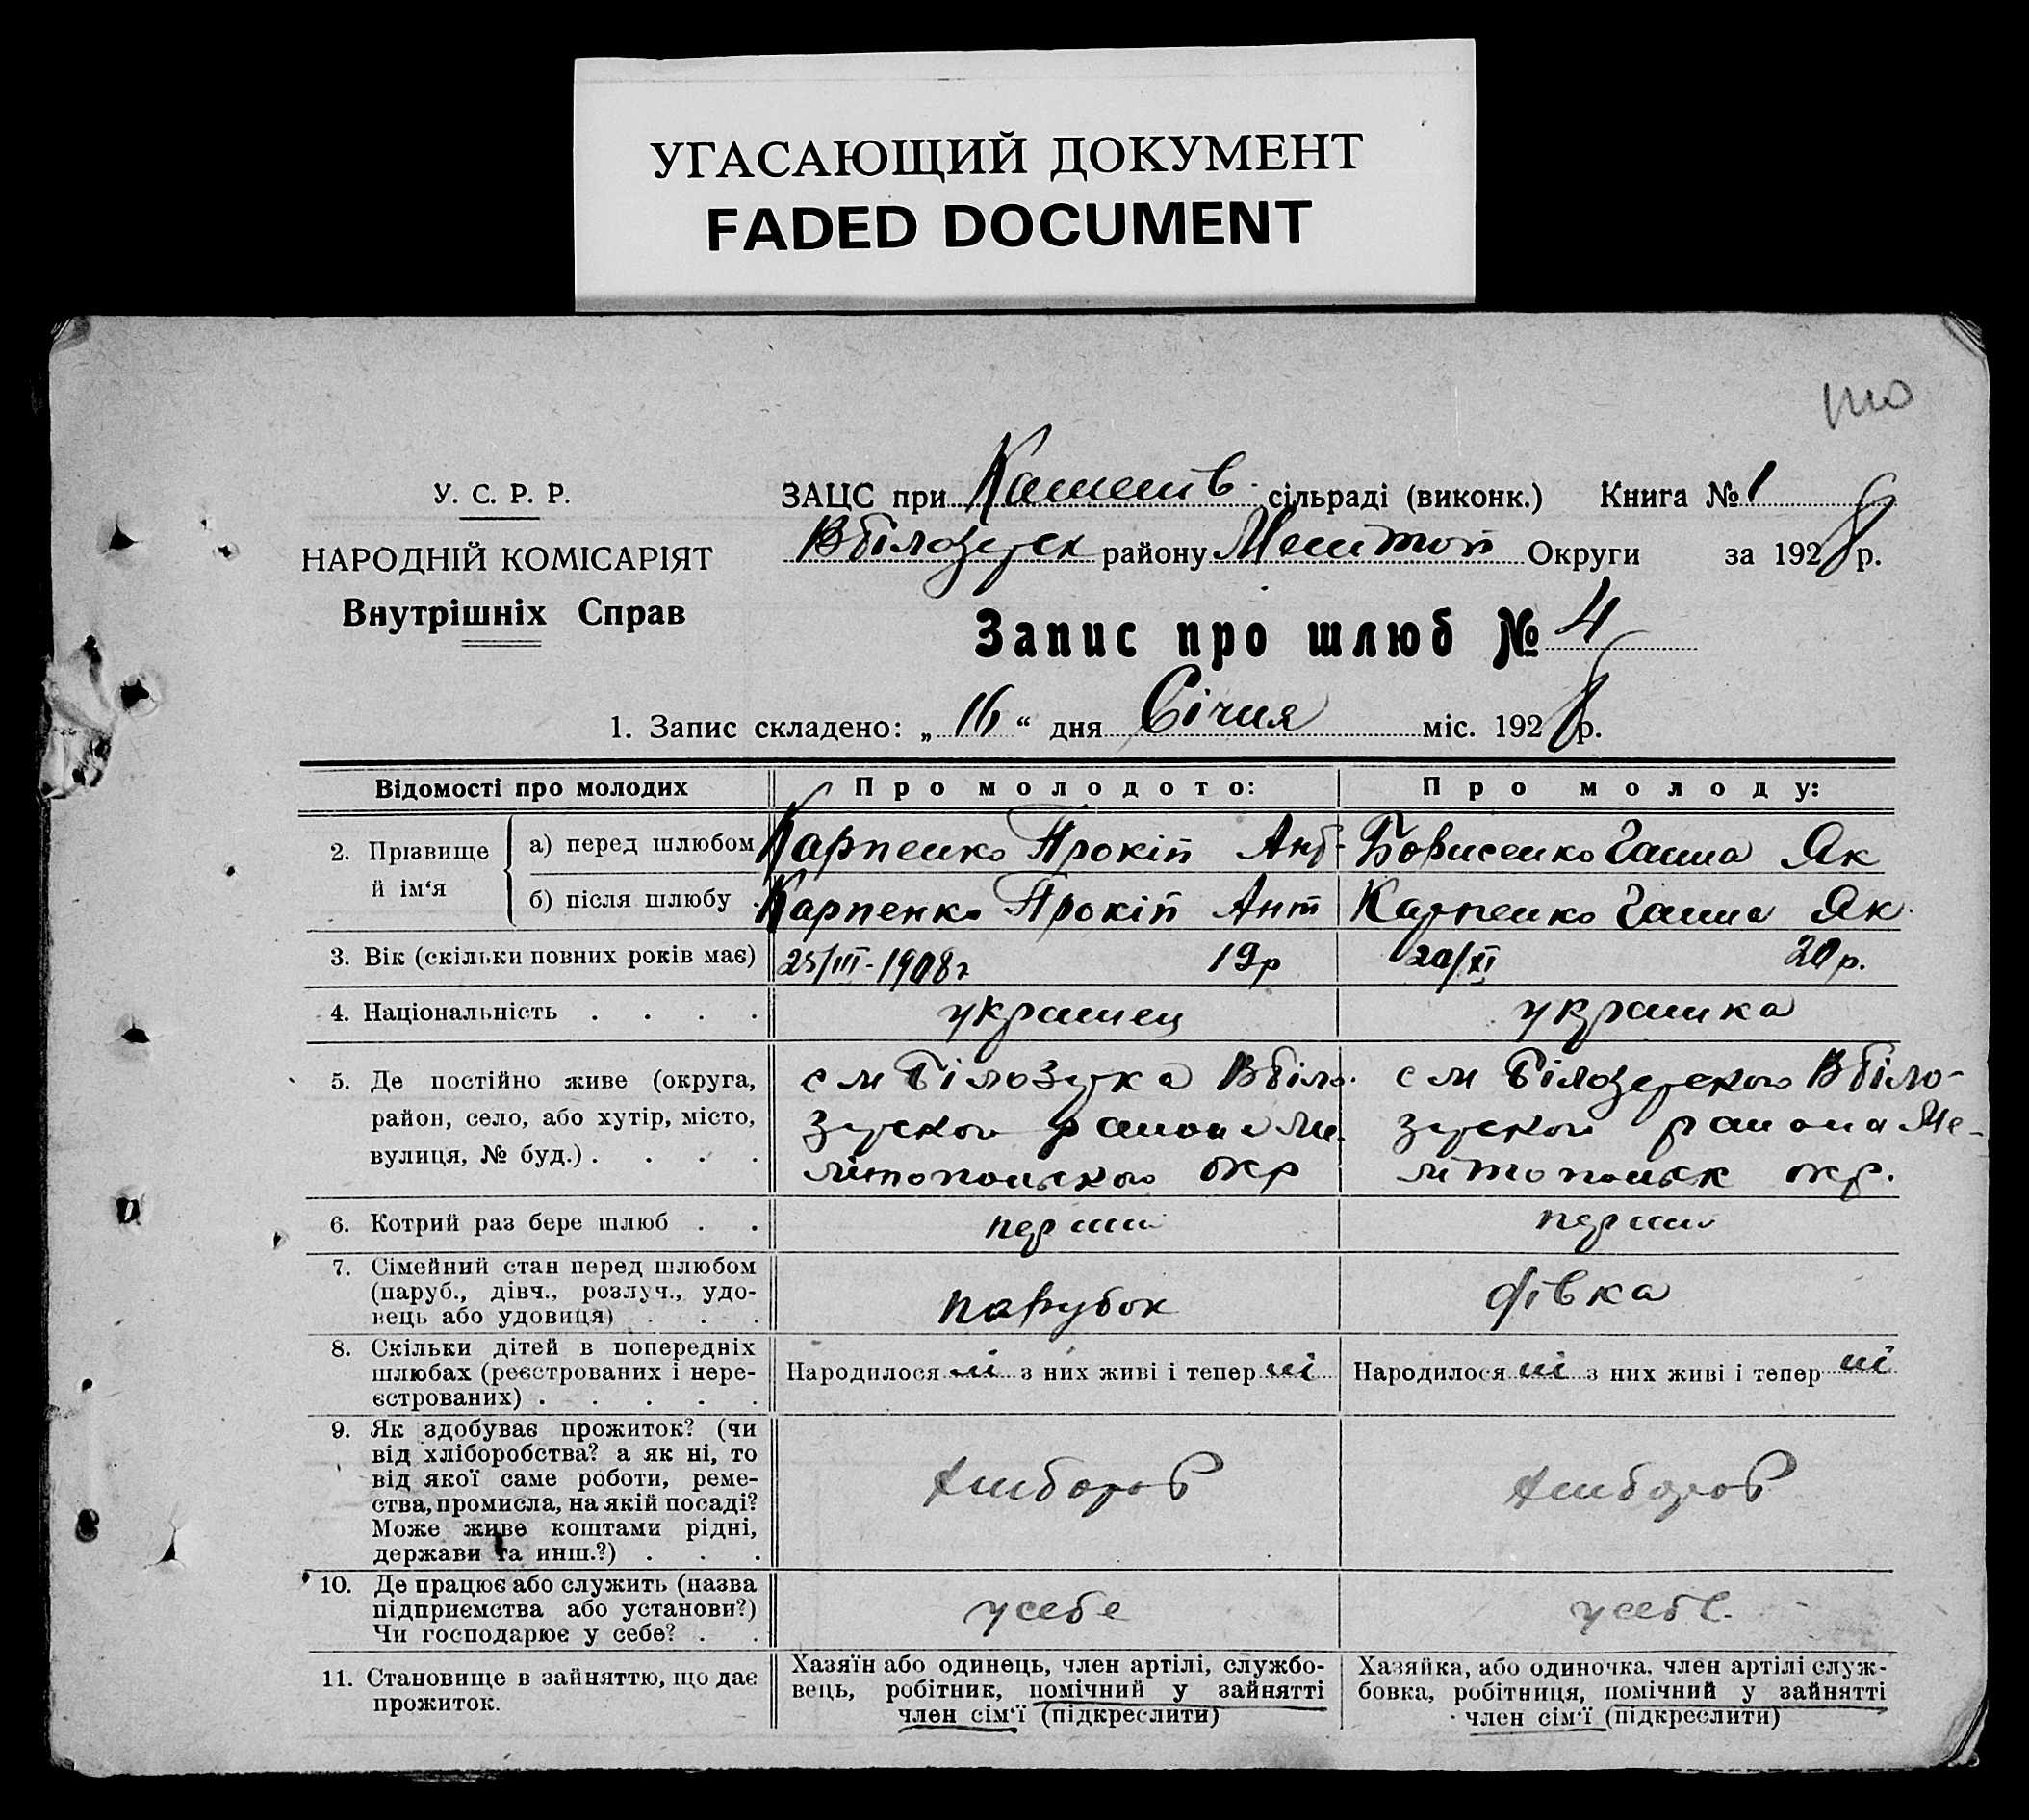 УГАСАЮЩИЙ ДОКУМЕНТ
FADED DOCUMENT
У. С. Р. Р.
НАРОДНІЙ КОМІСАРІЯТ
Внутрішніх Справ
ЗАЦС при сільраді (виконк.) Книга № 1
Вбілозерск району Округи за 1928 р.
Запис про шлюб № 4
1. Запис складено: „ 16 “ дня Січня міс. 1928 р.
Відомості про молодих Про молодого: Про молоду:
2. Прізвище й ім‘я
а) перед шлюбом Карпенко Прокіп Ант Борисенко Ганна Як
б) після шлюбу Карпенко Прокіп Ант Карпенко Ганна Як
3. Вік (скільки повних років має) 25/III-1908г 19р 20/XI 20р.
4. Національність . . . . украинец украинка
5. Де постійно живе (округа,
район, село, або хутір, місто,
вулиця, № буд.) . . . .
с М Білозерка Вбіло-
зерского району Ме-
літопольского окр
с М Білозерского Вбіло-
зерского району Ме-
літопольск окр.
6. Котрий раз бере шлюб . . перши перши
7. Сімейний стан перед шлюбом
(паруб., дівч., розлуч., удо-
вець або удовиця) . . .
парубок дівка
8. Скільки дітей в попередніх
шлюбах (реєстрованих і нере-
єстрованих) . . . . .
Народилося ні з них живі і тепер ні Народилося ні з них живі і тепер ні
9. Як здобуває прожиток? (чи
від хліборобства? а як ні, то
від якої саме роботи, реме-
ства, промисла, на якій посаді?
Може живе коштами рідні,
держави та инш.?) . . .
хлибороб хлибороб
10. Де працює або служить (назва
підприємства або установи?)
Чи господарює у себе? . .
у себе у себе.
11. Становище в зайняттю, що дає
прожиток.
Хазяїн або одинець, член артілі, службо-
вець, робітник, помічний у зайнятті
член сім‘ї (підкреслити)
Хазяйка, або одиночка, член артілі служ-
бовка, робітниця, помічний у зайнятті
член сім‘ї (підкреслити)